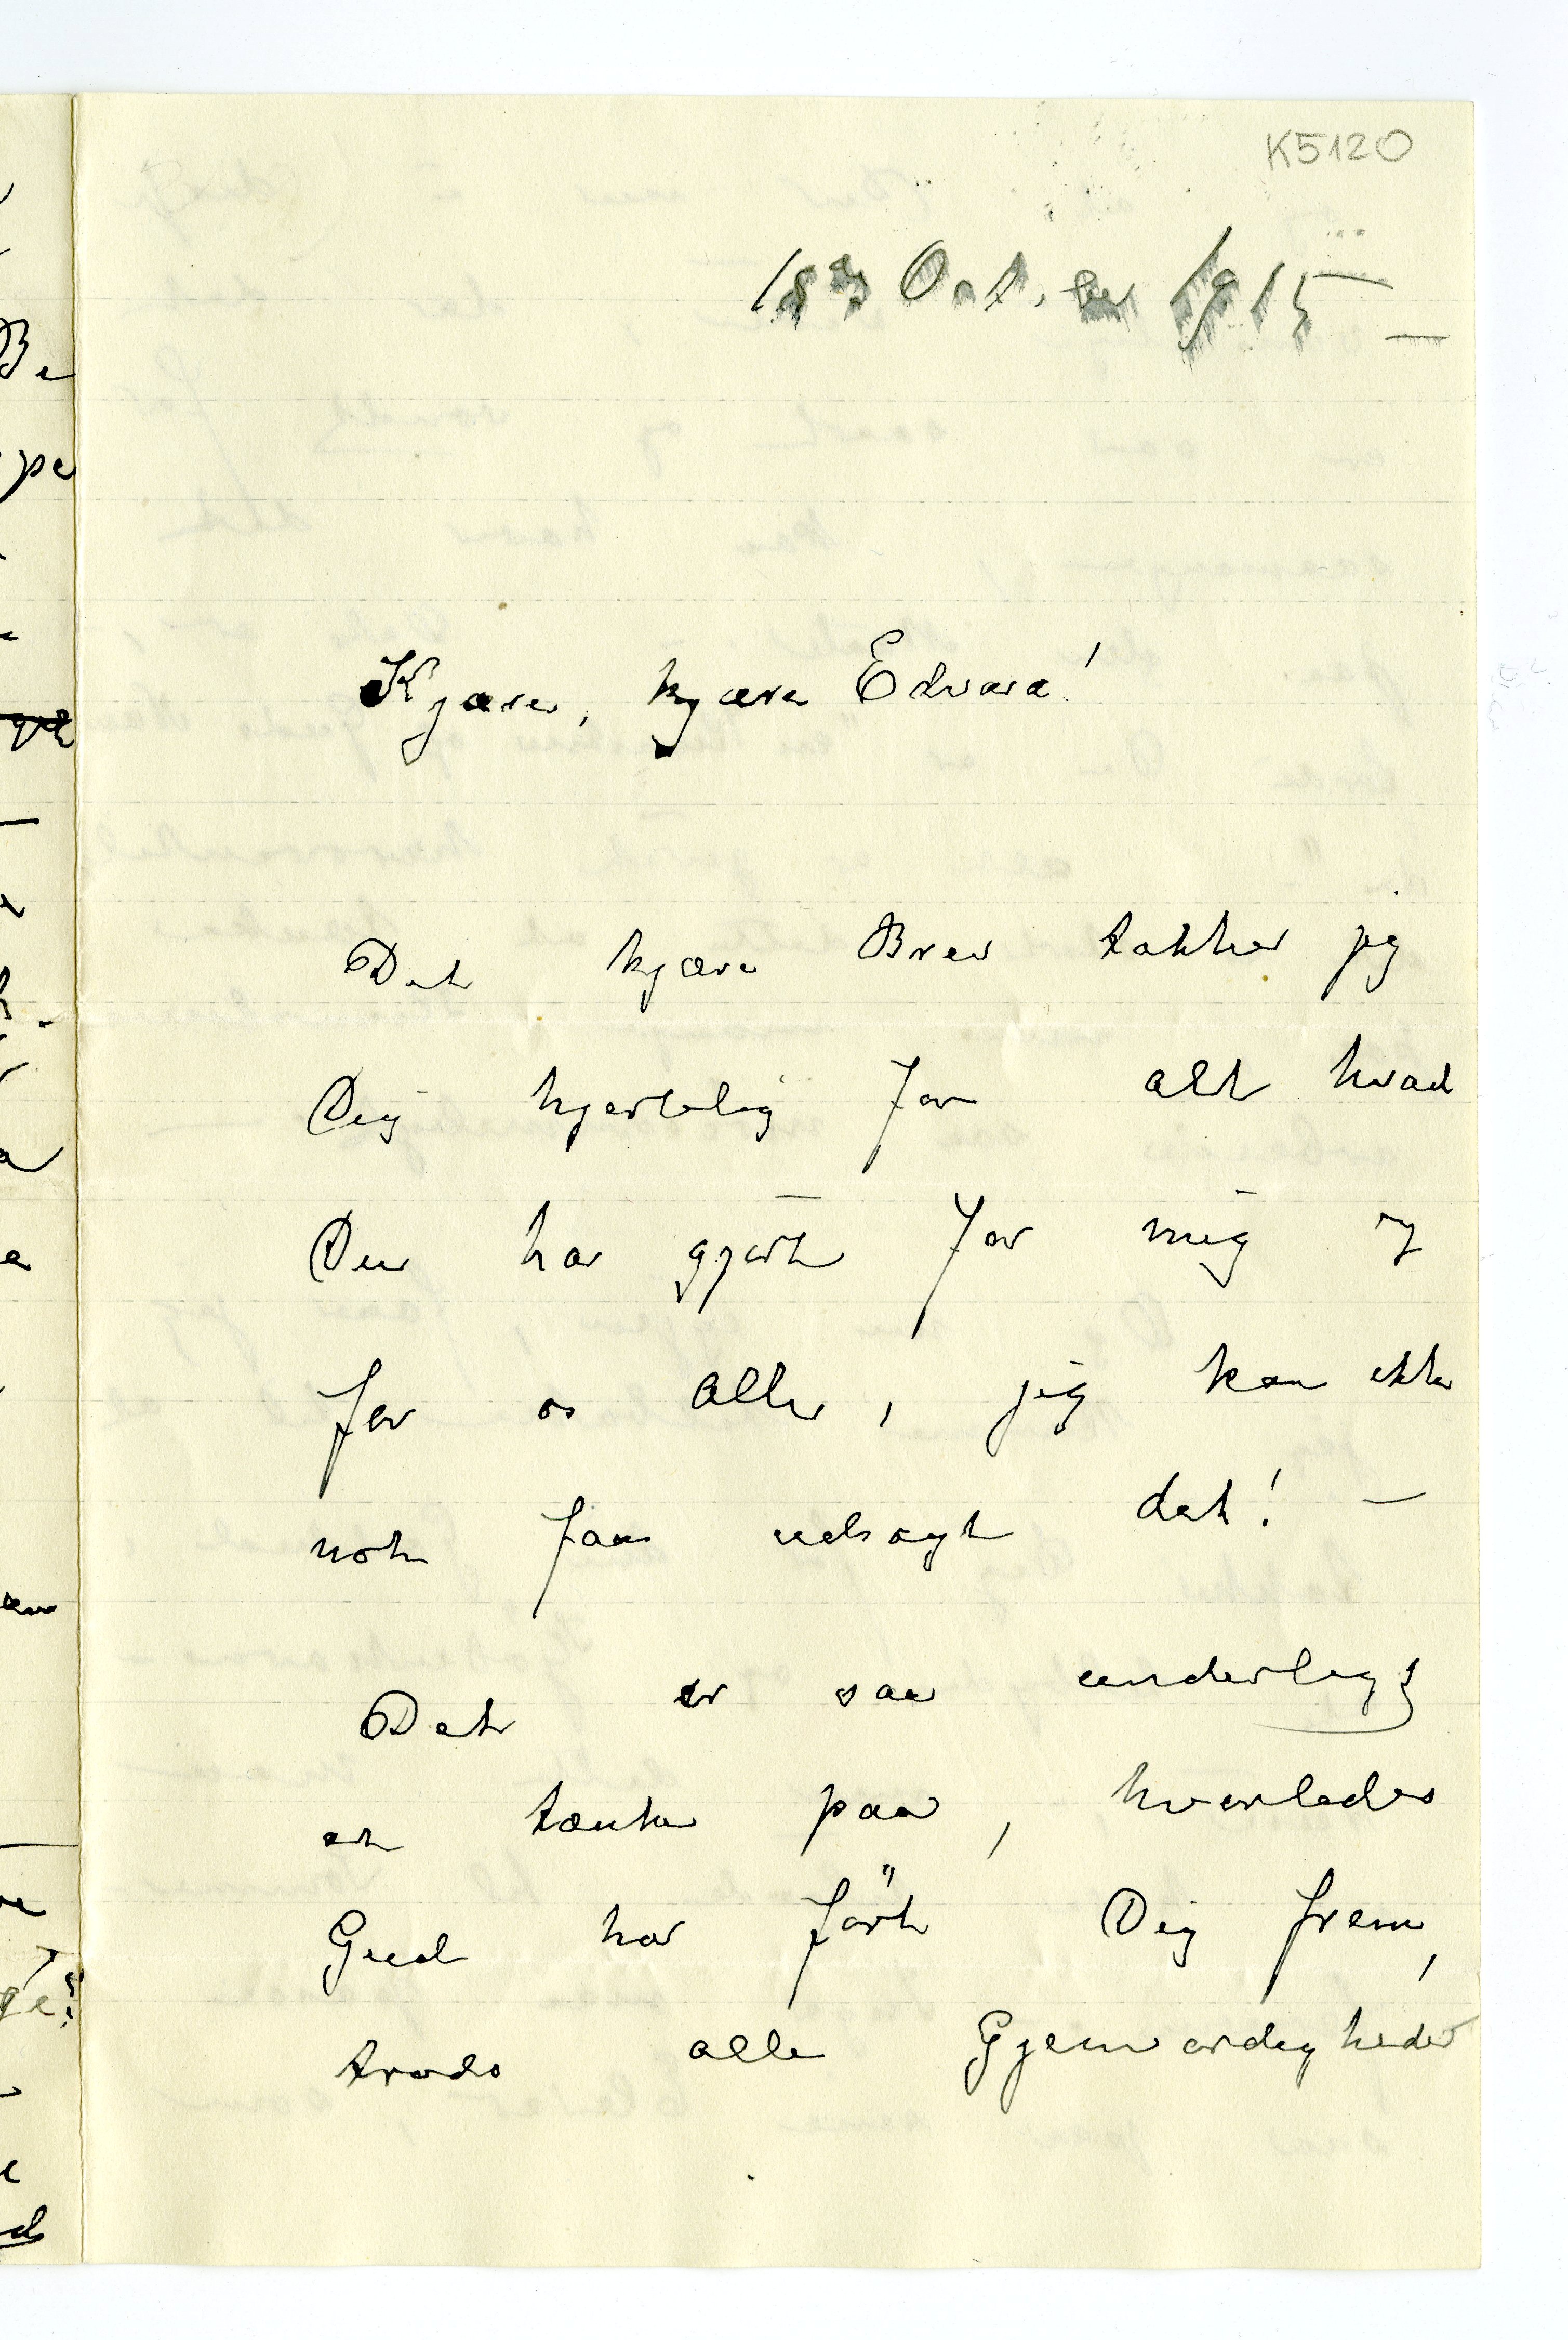 K5120
18de October 1915 —
Kjære, kjære Edvard!
Dit kjære Brev takker jeg
Dig hjertelig for alt hvad
Du har gjørt for mig og
for os Alle, jeg kan ikke
nok faa udsagt det! —
Det er saa underligt
at tænke paa, hvorledes
Gud har ført Dig frem,
trods alle Gjenvordigheder